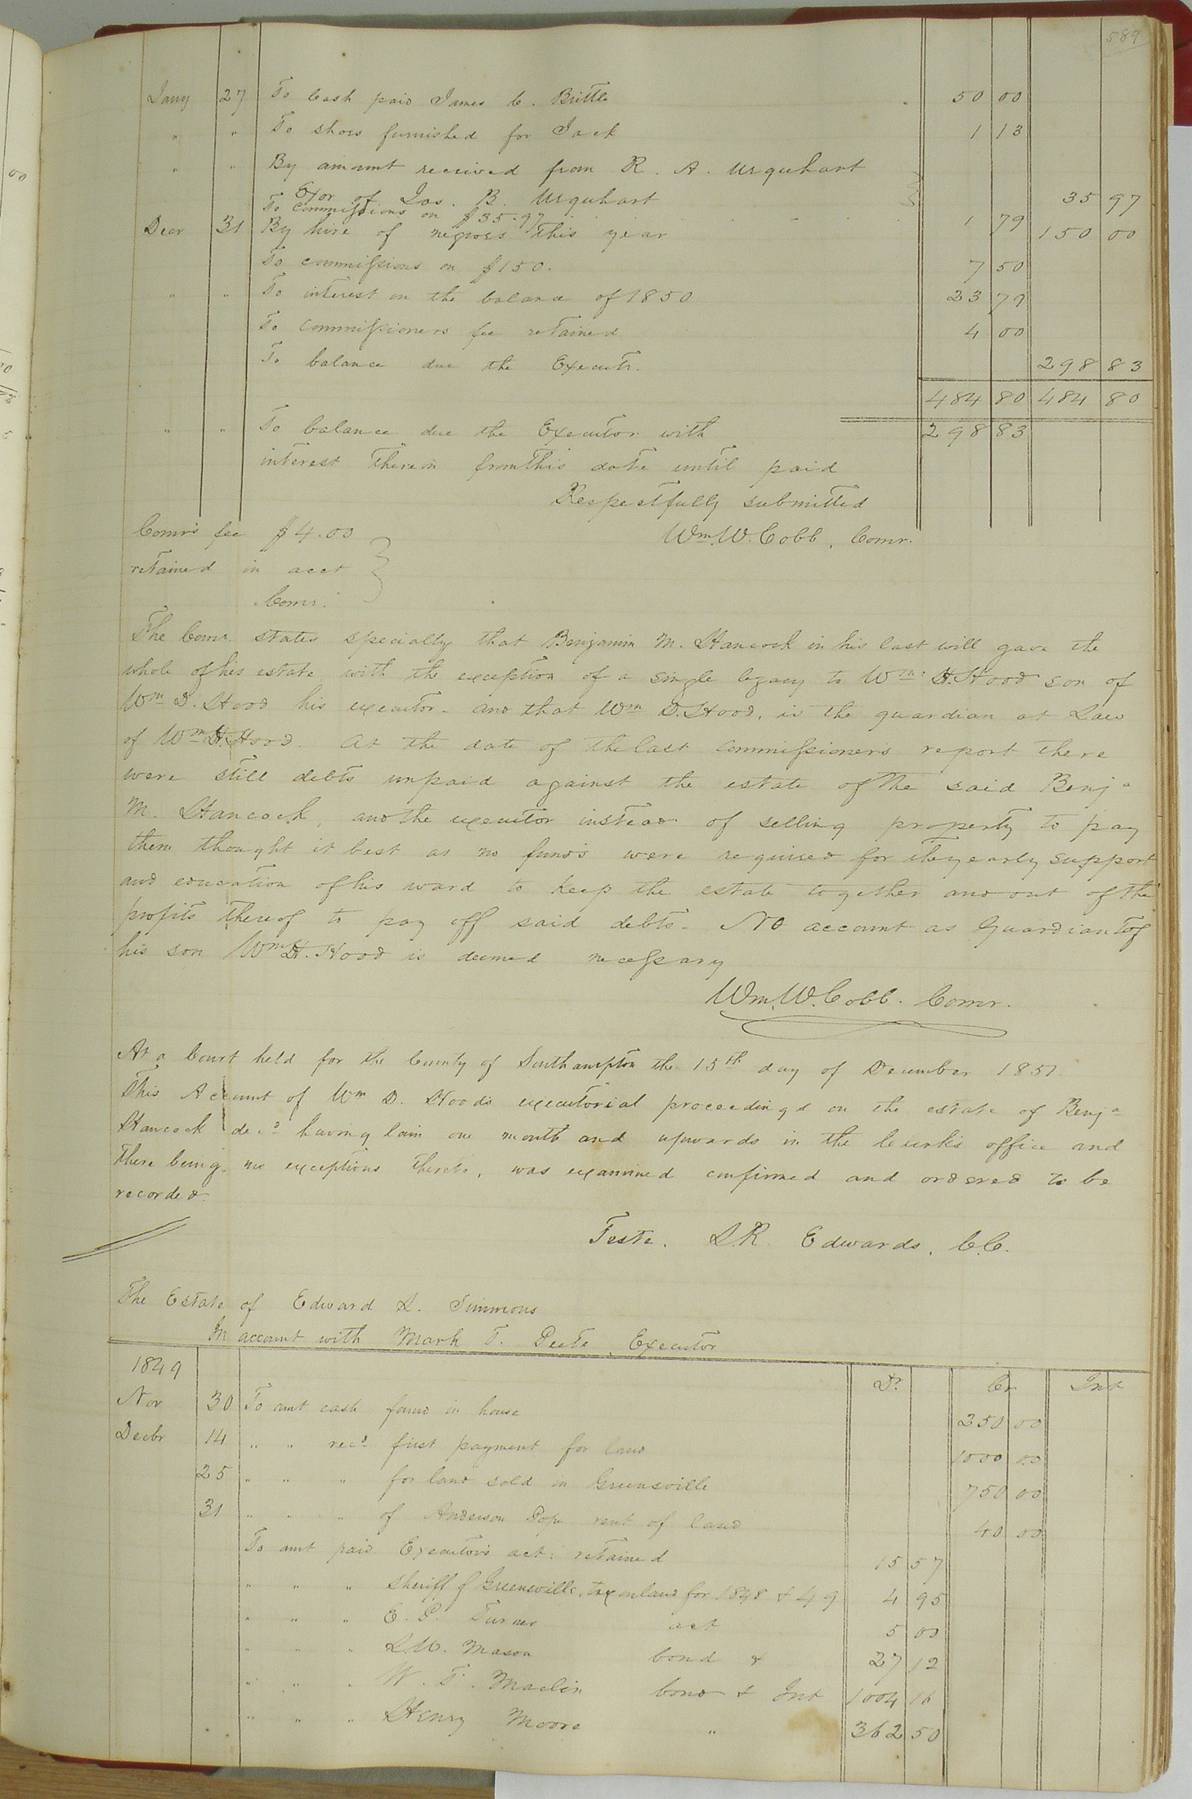 589
Jany 27 To Cash paid James C. Brittle 50 00
" " To shoes furnished for Jack 1 13
" " By amount received from R. A. Urquhart
Exor of Jas. B. Urquhart 35 97
To commissions on $35.97 1 79
Decr 31 By hire of negroes this year 150 00
To commissions on $150. 7 50
" " To interest on the balance of 1850 23 79
To commissioners fee retained 4 00
To balance due the Executr. 298 83
484 80 484 80
" " To balance due the Executor with 298 83
interest thereon from this date until paid
Respectfully submitted
Wm. W. Cobb, Comr.
Comr's fee $4.00
retained in acct
Comr.
The Comr. states specially that Benjamin M. Hancock in his last will gave the
whole of his estate with the exception of a single legacy to Wm H. Hood son of
Wm D. Hood his executor - and that Wm D. Hood, is the guardian at Law
of Wm H. Hood. At the date of the last commissioners report there
were still debts unpaid against the estate of the said Benja
M. Hancock, and the executor instead of selling property to pay
them thought it best as no funds were required for the yearly support
and education of his ward to keep the estate together and out of the
profits thereof to pay off said debts - No account as Guardian of
his son Wm H. Hood is deemed necessary
Wm. W. Cobb. Comr.
At a Court held for the County of Southampton the 15th day of December 1851
This Account of Wm D. Hood's executorial proceedings on the estate of Benja
Hancock decd having lain one month and upwards in the Clerk's office and
there being no exceptions thereto, was examined confirmed and ordered to be
recorded.
Teste. L R Edwards, C.C.
The Estate of Edward L. Simmons
In account with Mark T. Peete, Executor
1849 Dr Cr Int
Nov 30 To amt cash found in house 350 00
Decbr 14 " " recd first payment for land 1000 00
25 " " " for land sold in Greensville 750 00
31 " " " of Anderson Pope rent of land 40 00
To amt paid Executor's act: retained 15 57
" " " Sheriff of Greensville, tax on land for 1848 & 49 4 95
" " " E. P. Turner act 5 00
" " " L. W. Mason bond & 27 12
" " " W. T. Maclin bond & Int 1004 16
" " " Henry Moore " 362 50